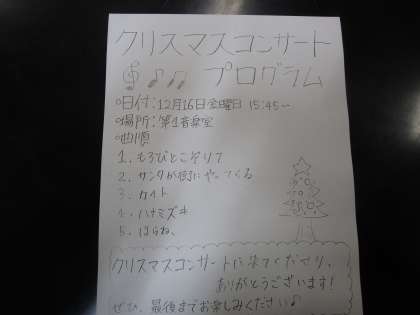 クリスマスコンサート
プログラム
○日付:12月16日金曜日 15:45~
○場所:第1音楽室
○曲順
1. もろびとこぞりて
2. サンタが街にやってくる
3. ケイト
4. ハナミズキ
5. はらぺ、
クリスマスコンサートに来てくださり、
ありがとうございます!
ぜひ、最後までお楽しみください♪